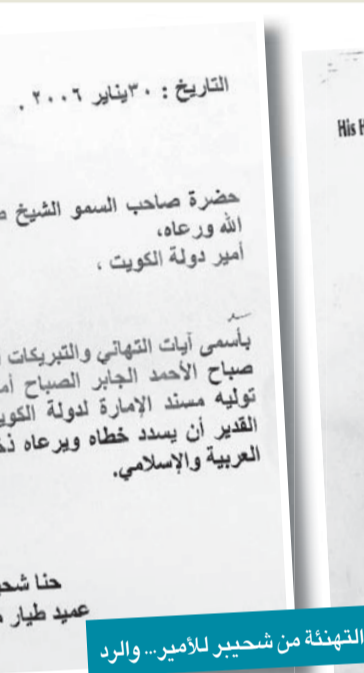 التاريخ : ٣٠ يناير ٢٠٠٦ .
His
حضرة صاحب السمو الشيخ
الله ورعاه،
أمير دولة الكويت ،
بأسمى آيات التهاني والتبريكات
صباح الأحمد الجابر الصباح
توليه مسند الإمارة لدولة
القدير أن يسدد خطاه ويرعاه
العربية والإسلامي.
حنا
عميد طيار
التهنئة من شحيبر للأمير... والرد